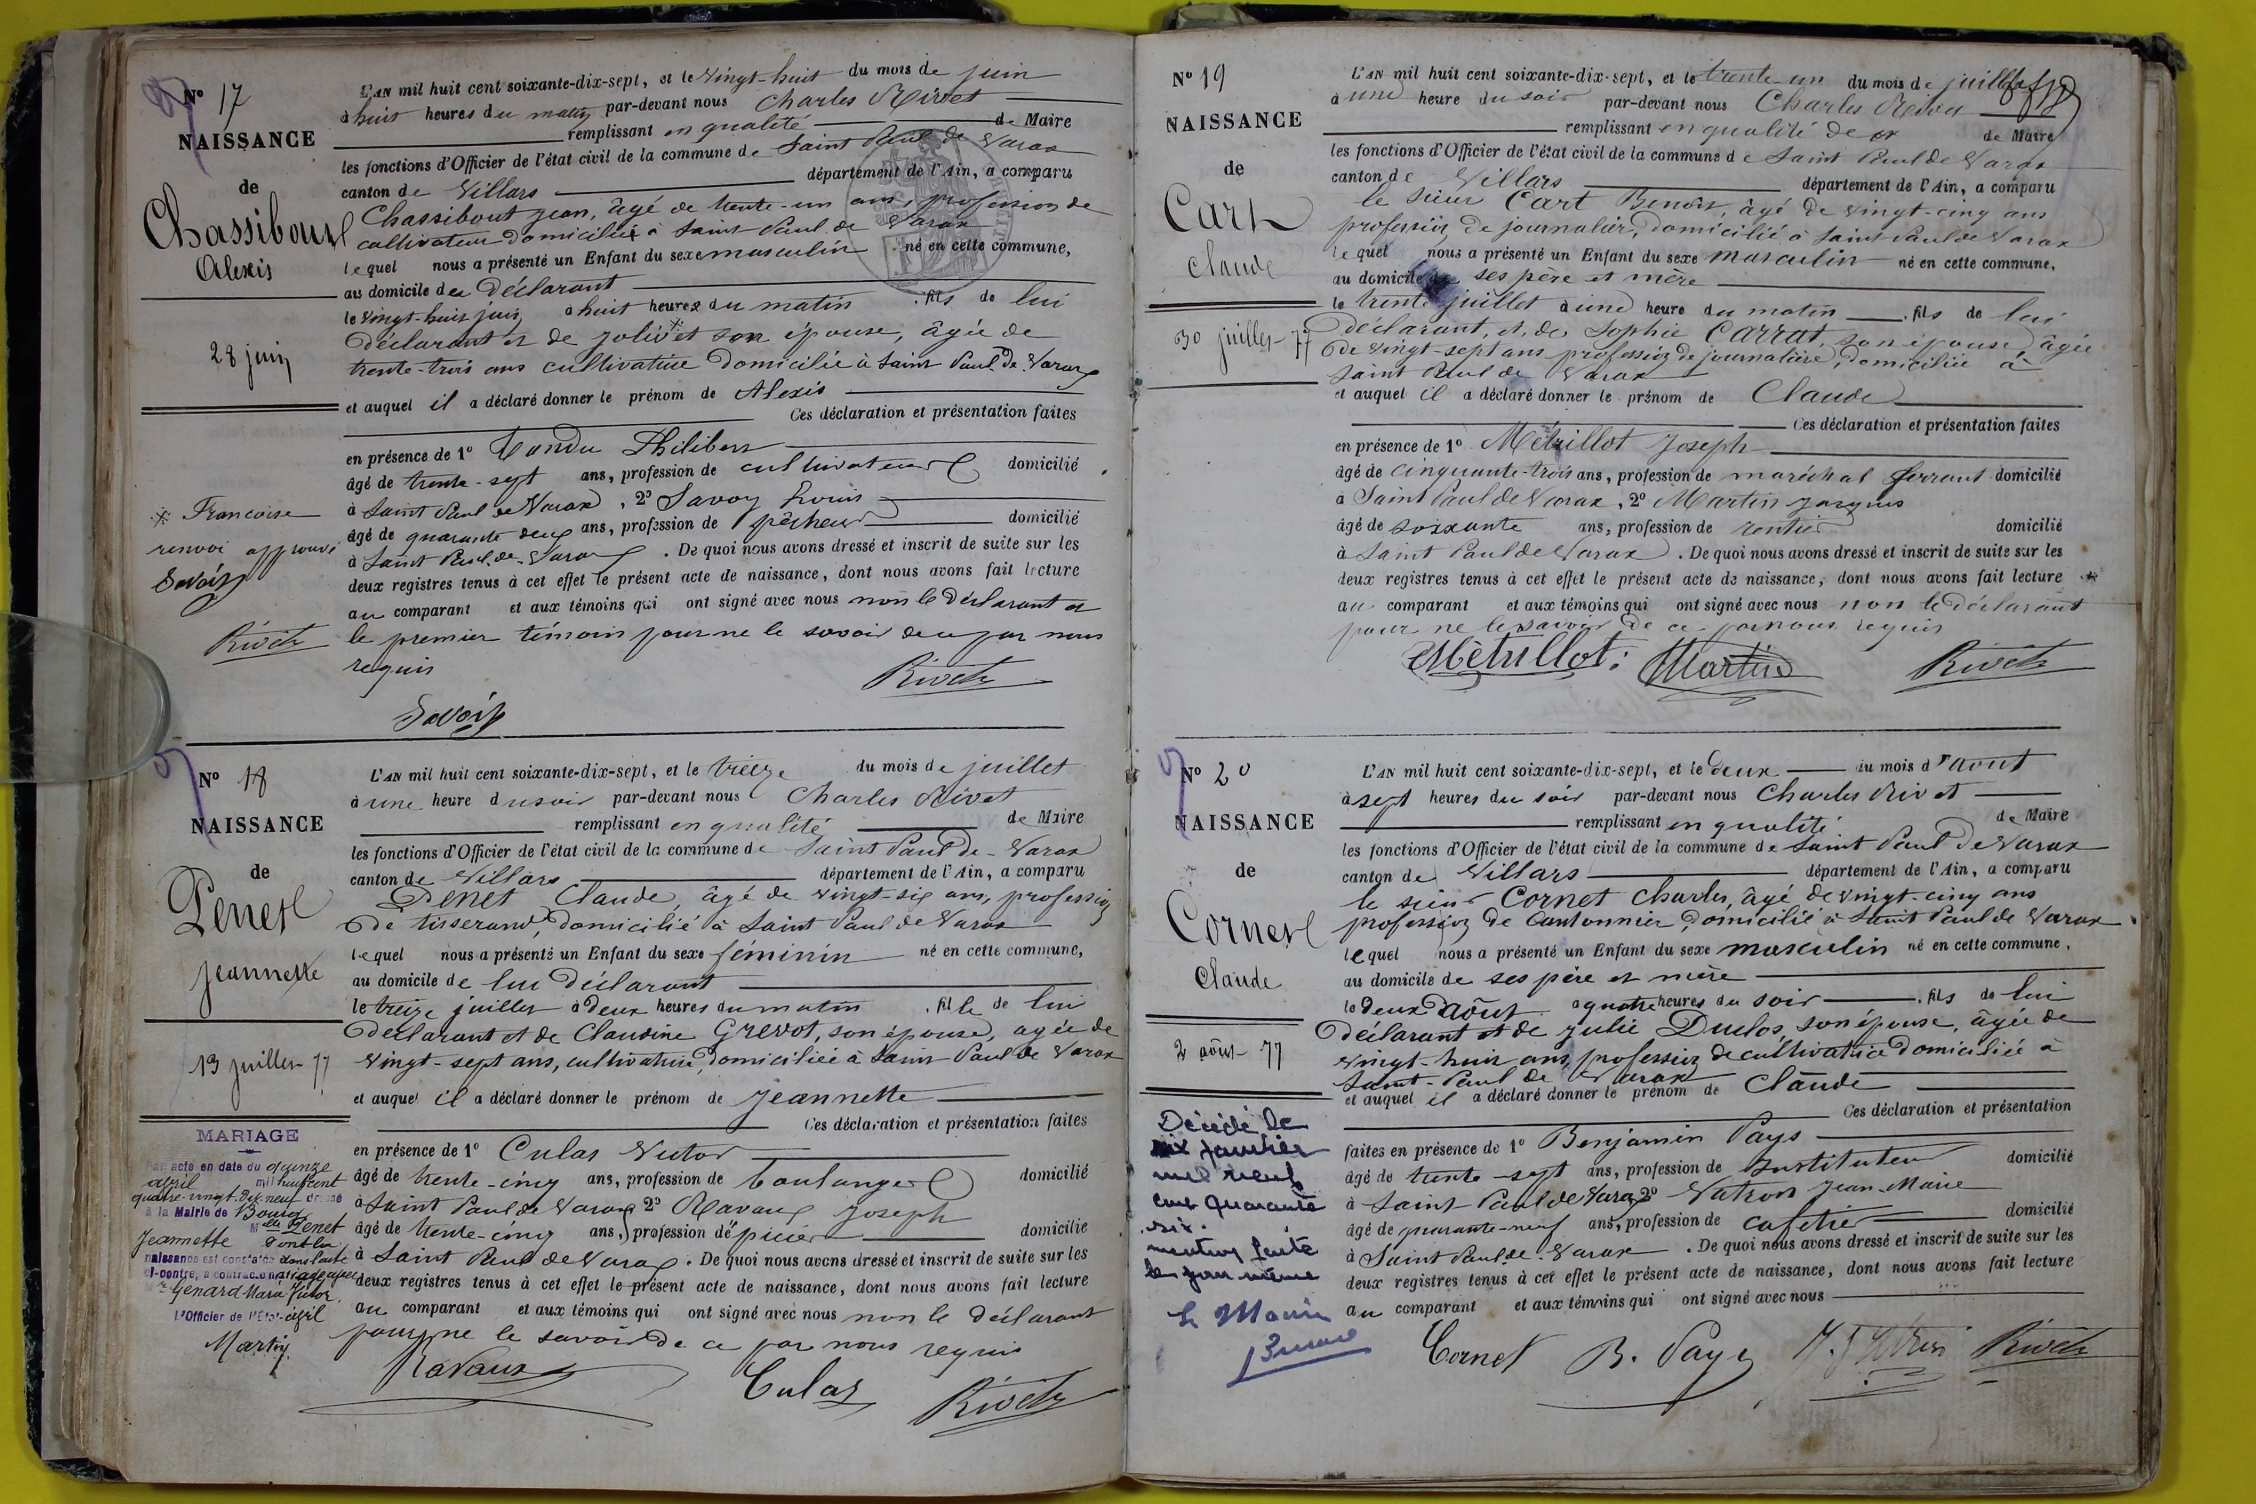 N° 17
NAISSANCE
de
Chassibout
Alexis
28 juin
L'AN mil huit cent soixante-dix-sept, et le vingt-huit du mois de juin
à huit heures du matin par-devant nous Charles Rivet
remplissant en qualité de Maire
les fonctions d'Officier de l'état civil de la commune de Saint Paul de Varax
canton de Villars département de l'Ain, a comparu
Chassibout Jean, âgé de trente-un ans, profession de
cultivateur domicilié à Saint Paul de Varax
lequel nous a présenté un Enfant du sexe masculin né en cette commune,
au domicile des déclarant
le vingt-huit juin à huit heures du matin, fils de lui
déclarant et de Jolivet son épouse, âgée de
trente-trois ans cultivatrice domiciliée à Saint Paul de Varax
et auquel il a déclaré donner le prénom de Alexis
Ces déclaration et présentation faites
en présence de 1° Tondu Philibert
âgé de trente-sept ans, profession de cultivateur domicilié
à Saint Paul de Varax, 2° Savoy Louis
âgé de quarante deux ans, profession de pêcheur domicilié
à Saint Paul de Varax. De quoi nous avons dressé et inscrit de suite sur les
deux registres tenus à cet effet le présent acte de naissance, dont nous avons fait lecture
au comparant et aux témoins qui ont signé avec nous non le déclarant et
le premier témoin pour ne le savoir de ce par nous
requis
Rivet
Savoy
* Francoise
renvoi approuvé
Savoy
Rivet
N° 18
NAISSANCE
de
Penet
Jeannette
13 juillet 77
L'AN mil huit cent soixante-dix-sept, et le treize du mois de juillet
à une heure du soir par-devant nous Charles Rivet
remplissant en qualité de Maire
les fonctions d'Officier de l'état civil de la commune de Saint Paul de Varax
canton de Villars département de l'Ain, a comparu
Penet Claude, âgé de vingt-six ans, profession
de tisserand, domicilié à Saint Paul de Varax
lequel nous a présenté un Enfant du sexe féminin né en cette commune,
au domicile de lui déclarant
le treize juillet à deux heures du matin, fille de lui
déclarant et de Claudine Grevot, son épouse, agée de
vingt-sept ans, cultivatrice, domiciliée à Saint Paul de Varax
et auquel il a déclaré donner le prénom de Jeannette
Ces déclaration et présentation faites
en présence de 1° Culas Victor
âgé de trente-cinq ans, profession de boulanger domicilié
à Saint Paul de Varax 2° Ravaux Joseph
âgé de trente-cinq ans, profession d'épicier domicilié
à Saint Paul de Varax. De quoi nous avons dressé et inscrit de suite sur les
deux registres tenus à cet effet le présent acte de naissance, dont nous avons fait lecture
au comparant et aux témoins qui ont signé avec nous non le déclarant
pour ne le savoir de ce par nous requis
Ravaux Culas Rivet
MARIAGE
Par acte en date du quinze
avril mil huit cent
quatre-vingt-dix-neuf dressé
à la Mairie de Bourg
Melle Penet
Jeannette dont la
naissance est constatée dans l'acte
ci-contre, a contracté mariage avec
Genard Marie Victor
L'Officier de l'Etat-civil
Martin
N° 19
NAISSANCE
de
Cart
Claude
30 juillet 77
L'AN mil huit cent soixante-dix-sept, et le trente-un du mois de juillet
à une heure du soir par-devant nous Charles Rivet
remplissant en qualité de de Maire
les fonctions d'Officier de l'état civil de la commune de Saint Paul de Varax
canton de Villars département de l'Ain, a comparu
le sieur Cart Benoit, âgé de vingt-cinq ans
profession de journalier, domicilié à Saint Paul de Varax
lequel nous a présenté un Enfant du sexe masculin né en cette commune,
au domicile de ses père et mère
le trente juillet à une heure du matin, fils de lui
déclarant, et de Sophie Carrat, son épouse, âgée
de vingt-sept ans profession de journalière, domiciliée à
Saint Paul de Varax
et auquel il a déclaré donner le prénom de Claude
Ces déclaration et présentation faites
en présence de 1° Métrillot Joseph
âgé de cinquante-trois ans, profession de maréchal ferrant domicilié
à Saint Paul de Varax, 2° Martin Jacques
âgé de soixante ans, profession de rentier domicilié
à Saint Paul de Varax. De quoi nous avons dressé et inscrit de suite sur les
deux registres tenus à cet effet le présent acte de naissance, dont nous avons fait lecture
au comparant et aux témoins qui ont signé avec nous non le déclarant
pour ne le savoir de ce par nous requis
Métrillot Martin Rivet
N° 20
NAISSANCE
de
Cornet
Claude
2 août 77
L'AN mil huit cent soixante-dix-sept, et le deux du mois d'août
à sept heures du soir par-devant nous Charles Rivet
remplissant en qualité de Maire
les fonctions d'Officier de l'état civil de la commune de Saint Paul de Varax
canton de Villars département de l'Ain, a comparu
le sieur Cornet Charles, âgé de vingt-cinq ans
profession de Cantonnier, domicilié à Saint Paul de Varax
lequel nous a présenté un Enfant du sexe masculin né en cette commune,
au domicile de ses père et mère
le deux août à quatre heures du soir, fils de lui
déclarant et de Julie Duclos, son épouse, âgée de
vingt-huit ans, profession de cultivatrice domiciliée à
Saint-Paul de Varax
et auquel il a déclaré donner le prénom de Claude
Ces déclaration et présentation
faites en présence de 1° Benjamin Pays
âgé de trente-sept ans, profession de Instituteur domicilié
à Saint Paul de Varax 2° Vatron Jean Marie
âgé de quarante-neuf ans, profession de cafetier domicilié
à Saint Paul de Varax. De quoi nous avons dressé et inscrit de suite sur les
deux registres tenus à cet effet le présent acte de naissance, dont nous avons fait lecture
au comparant et aux témoins qui ont signé avec nous
Cornet B. Pays Rivet
Décédé le
six janvier
mil neuf
cent quarante
six.
mention faite
le jour même
Le Maire